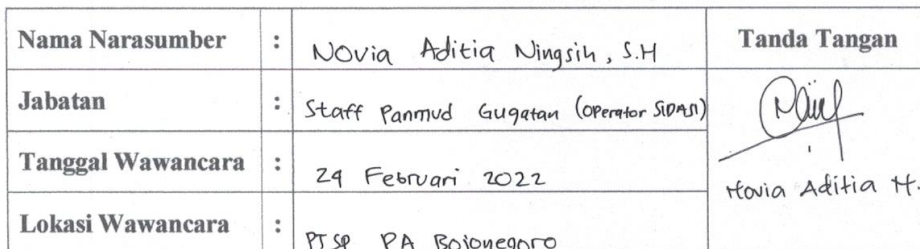 Nama Narasumber : Novia Aditia Ningsih, S.H
Tanda Tangan
Jabatan : Staff Panmud Gugatan (Operator SIDASI)
Tanggal Wawancara : 24 Februari 2022
Novia Aditia N.
Lokasi Wawancara : PTSP PA Bojonegoro